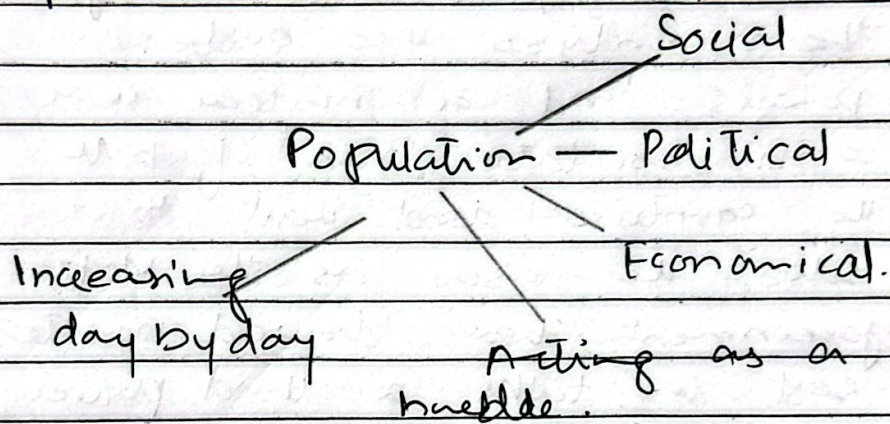 Social
Population — Political
Economical.
Increasing
day by day
Acting as a
hurdle.